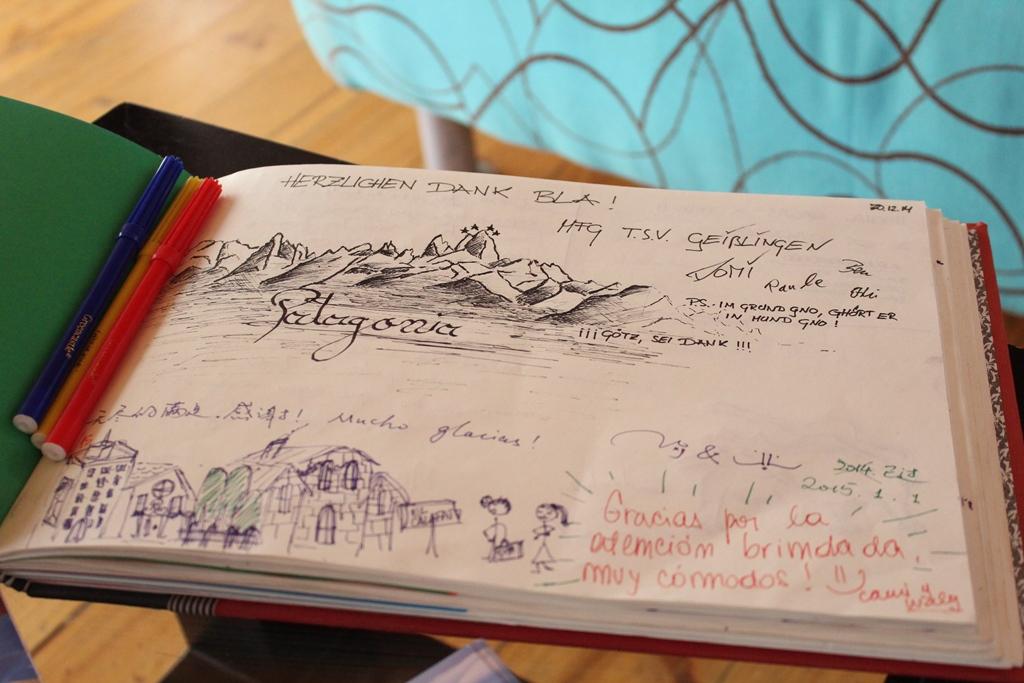 HERZLICHEN DANK BLA!
20.12.14
HFG T.S.V. GEIßLINGEN
Paule
P.S. IM GRUND GNO, GHÖRT ER
IN HUND GNO!
¡¡¡GÖTZ, SEI DANK!!!
Patagonia
感谢! Mucho glacias!
&
2014.
2015. 1. 1
Gracias por la
atención brindada,
muy cómodos!
Cami y